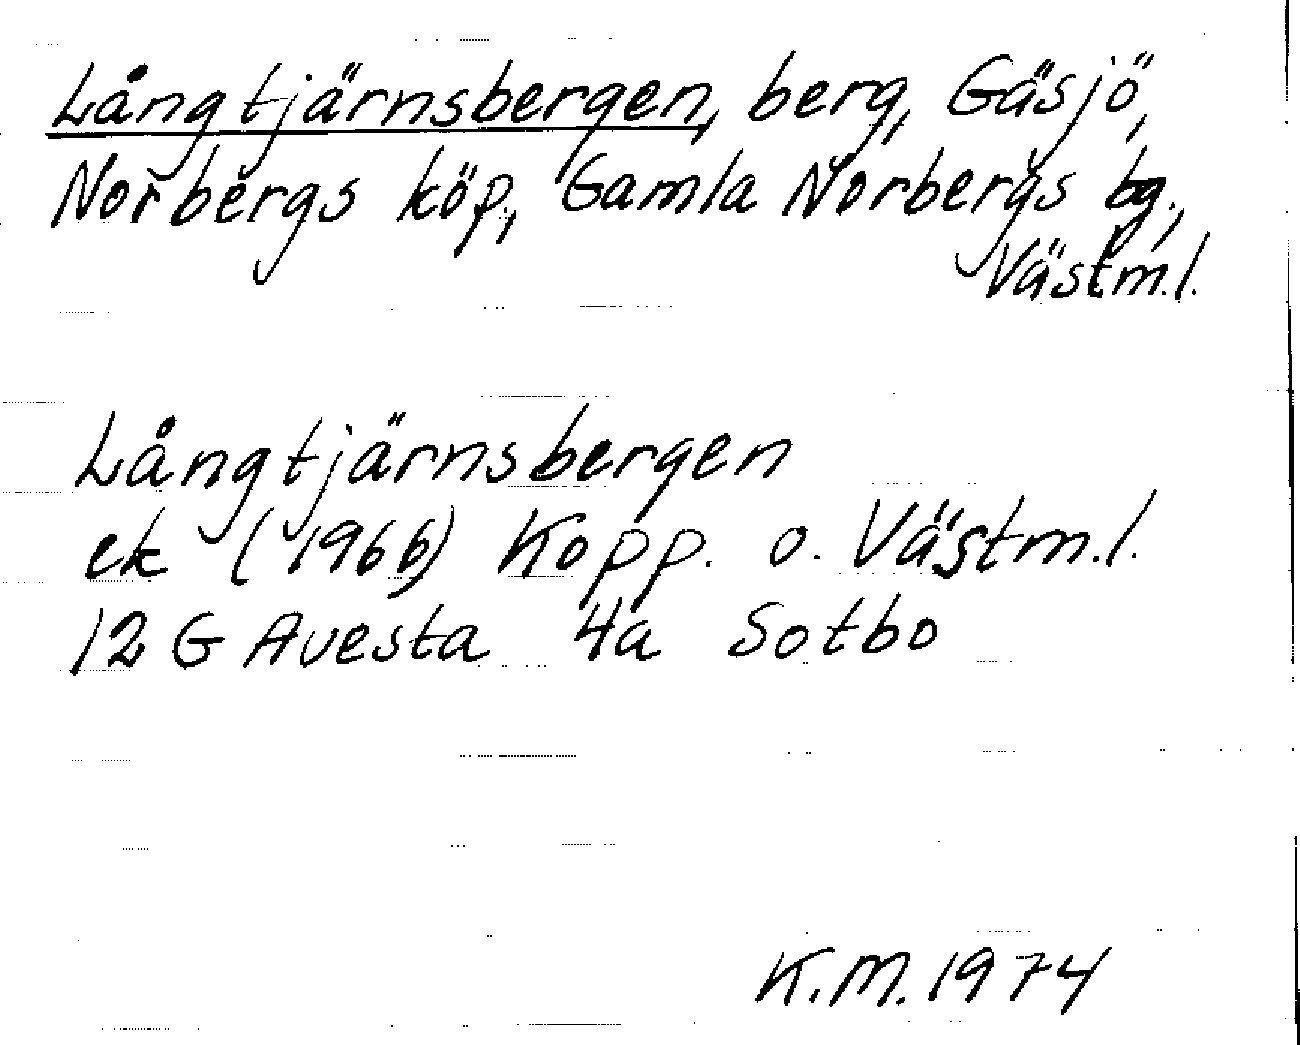 Långtjärnsbergen, berg, Gäsjö,
Norbergs köp., Gamla Norbergs bg.,
Västm.l.
Långtjärnsbergen
ek (1966) Kopp. o. Västm.l.
12 G Avesta 4a Sotbo
K.M. 1974